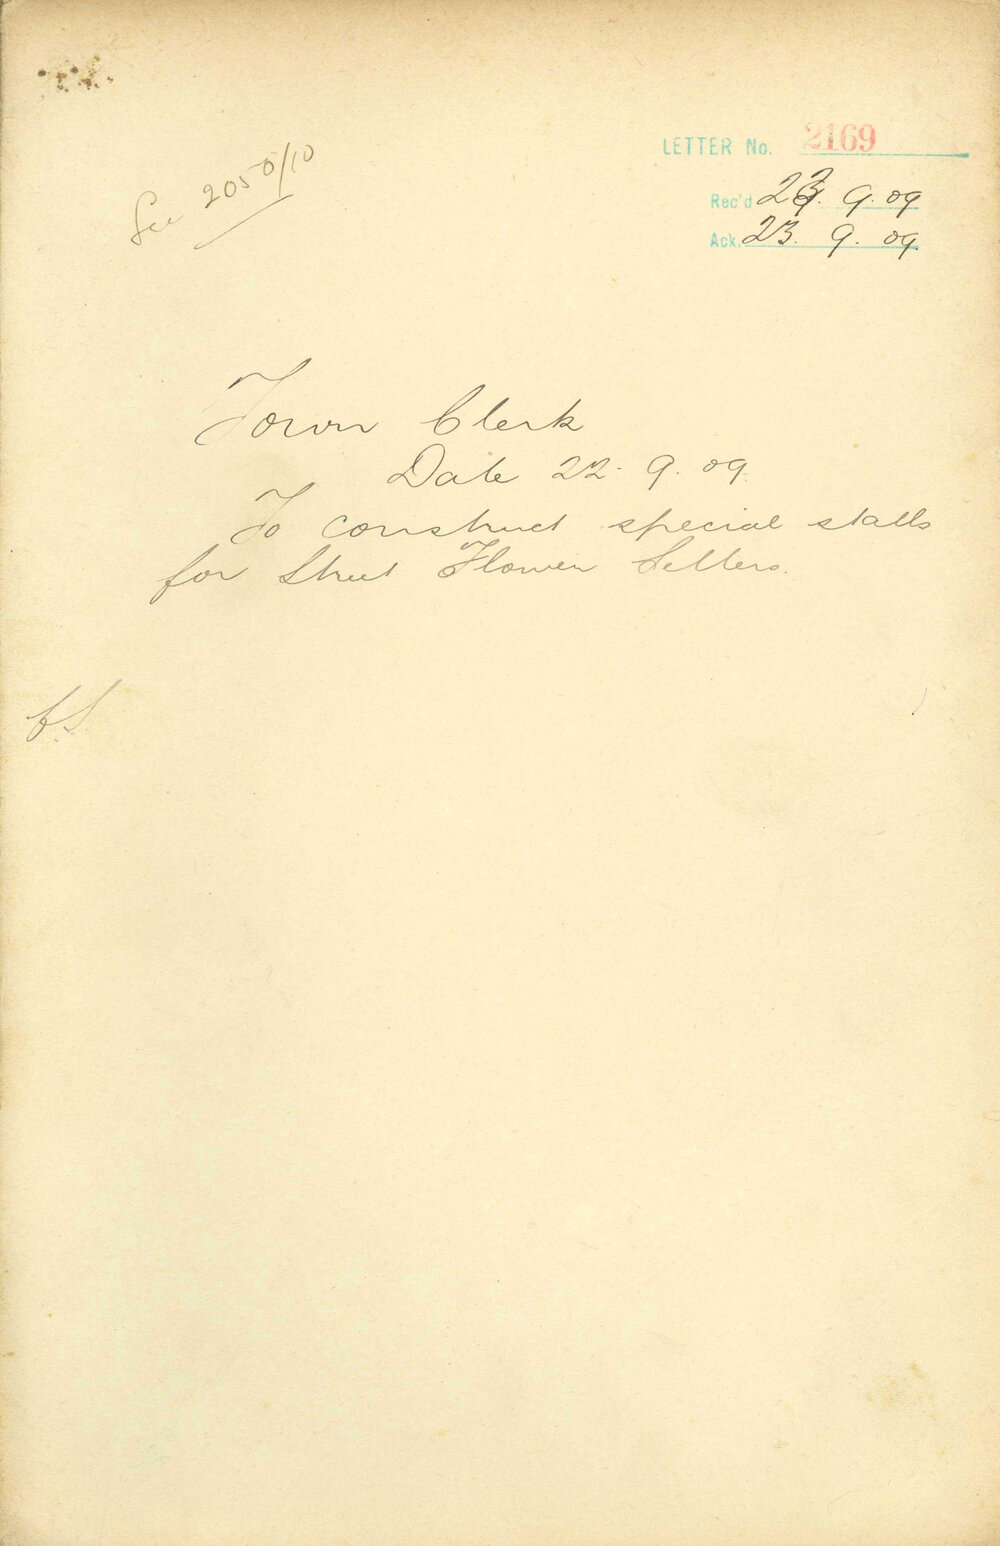 LETTER No. 2169
See 2050/10
Rec'd 23. 9. 09
Ack. 23. 9. 09
Town Clerk
Date 22. 9. 09
To construct special stalls
for Street Flower Sellers.